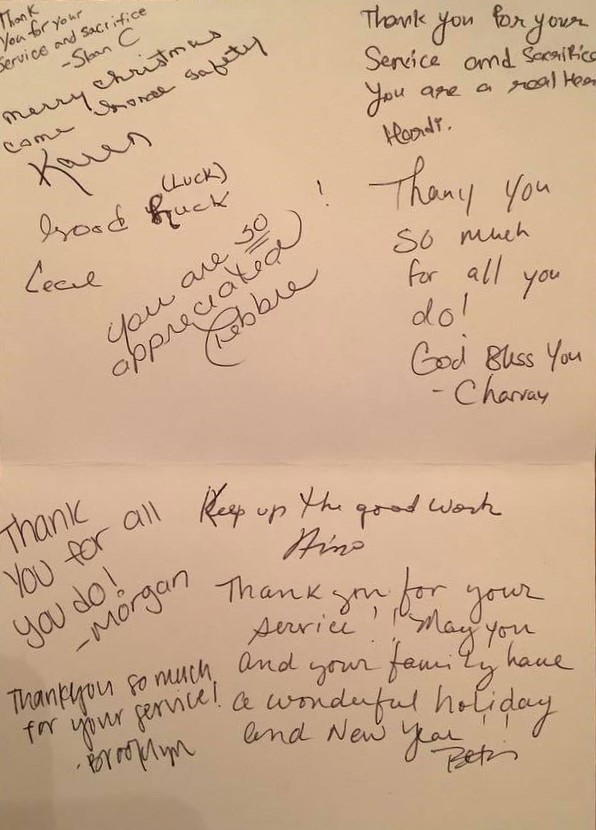 Thank
You for your
Service and sacrifice
-Stan C
Merry christmas
come home safety
Karen
(Luck)
Good Ruck
Cecil
you are so
appreciated!
Debbie
Thank you for your
Service and Sacrifice
You are a real Hero
Hardi.
Thany you
so much
for all you
do!
God Bless You
- Charvay
Thank
You for all
you do!
-Morgan
Keep up the good work
Thank you for your
service!! May you
and your family have
a wonderful holiday
and New Year!!
Thankyou so much
for your service!
-Brooklyn